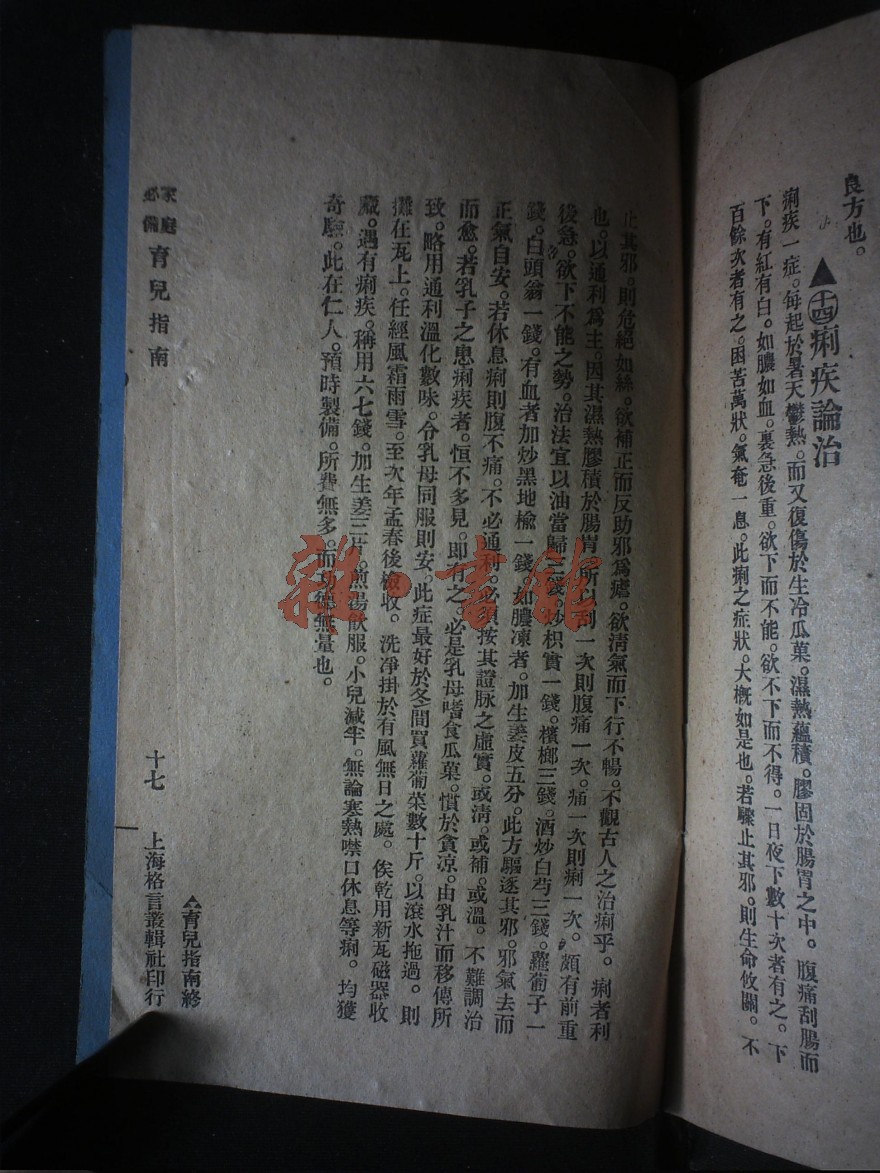 良方也。
▲㊉四痢疾論治
痢疾一症。每起於暑天鬱熱。而又復傷於生冷瓜菓。濕熱蘊積。膠固於腸胃之中。腹痛刮腸而
下。有紅有白。如膿如血。裏急後重。欲下而不能。欲不下而不得。一日夜下數十次者有之。下
百餘次者有之。困苦萬狀。氣奄一息。此痢之症狀。大概如是也。若驟止其邪。則生命攸關。不
止其邪。則危絕如絲。欲補正而反助邪爲瘧。欲淸氣而下行不暢。不觀古人之治痢乎。痢者利
也。以通利爲主。因其濕熱膠積於腸胃。所以刮一次則腹痛一次。痛一次則痢一次。頗有前重
後急。欲下不能之勢。治法宜以油當歸三錢。炒枳實一錢。檳榔三錢。酒炒白芍三錢。蘿蔔子一
錢。白頭翁一錢。有血者加炒黑地楡一錢。如膿凍者。加生姜皮五分。此方驅逐其邪。邪氣去而
正氣自安。若休息痢則腹不痛。不必通利。必須按其證脉之虛實。或淸。或補。或溫。不難調治
而愈。若乳子之患痢疾者。恒不多見。即有之。必是乳母嗜食瓜菓。慣於貪凉。由乳汁而移傳所
致。略用通利溫化數味。令乳母同服則安。此症最好於冬間買蘿蔔菜數十斤。以滾水拖過。則
攤在瓦上。任經風霜雨雪。至次年孟春後檢收。洗凈掛於有風無日之處。俟乾用新瓦磁器收
藏。遇有痢疾。稱用六七錢。加生姜三片。煎湯飲服。小兒減半。無論寒熱噤口休息等痢。均獲
奇驗。此在仁人。預時製備。所費無多。而功德無量也。
▲育兒指南終
家庭必備 育兒指南 十七 上海格言叢輯社印行
雜·書館